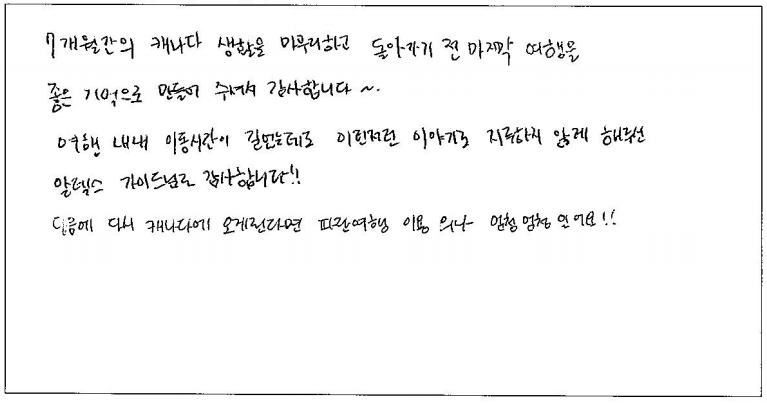 7개월간의 캐나다 생활을 마무리하고 돌아가기 전 마지막 여행을
좋은 기억으로 만들어 주셔서 감사합니다~.
여행 내내 이동시간이 길었는데도 이런저런 이야기로 지루하지 않게 해주신
알렉스 가이드님도 감사합니다!!
다음에 다시 캐나다에 오게된다면 파란여행 이용 의사 엄청엄청 있어요!!